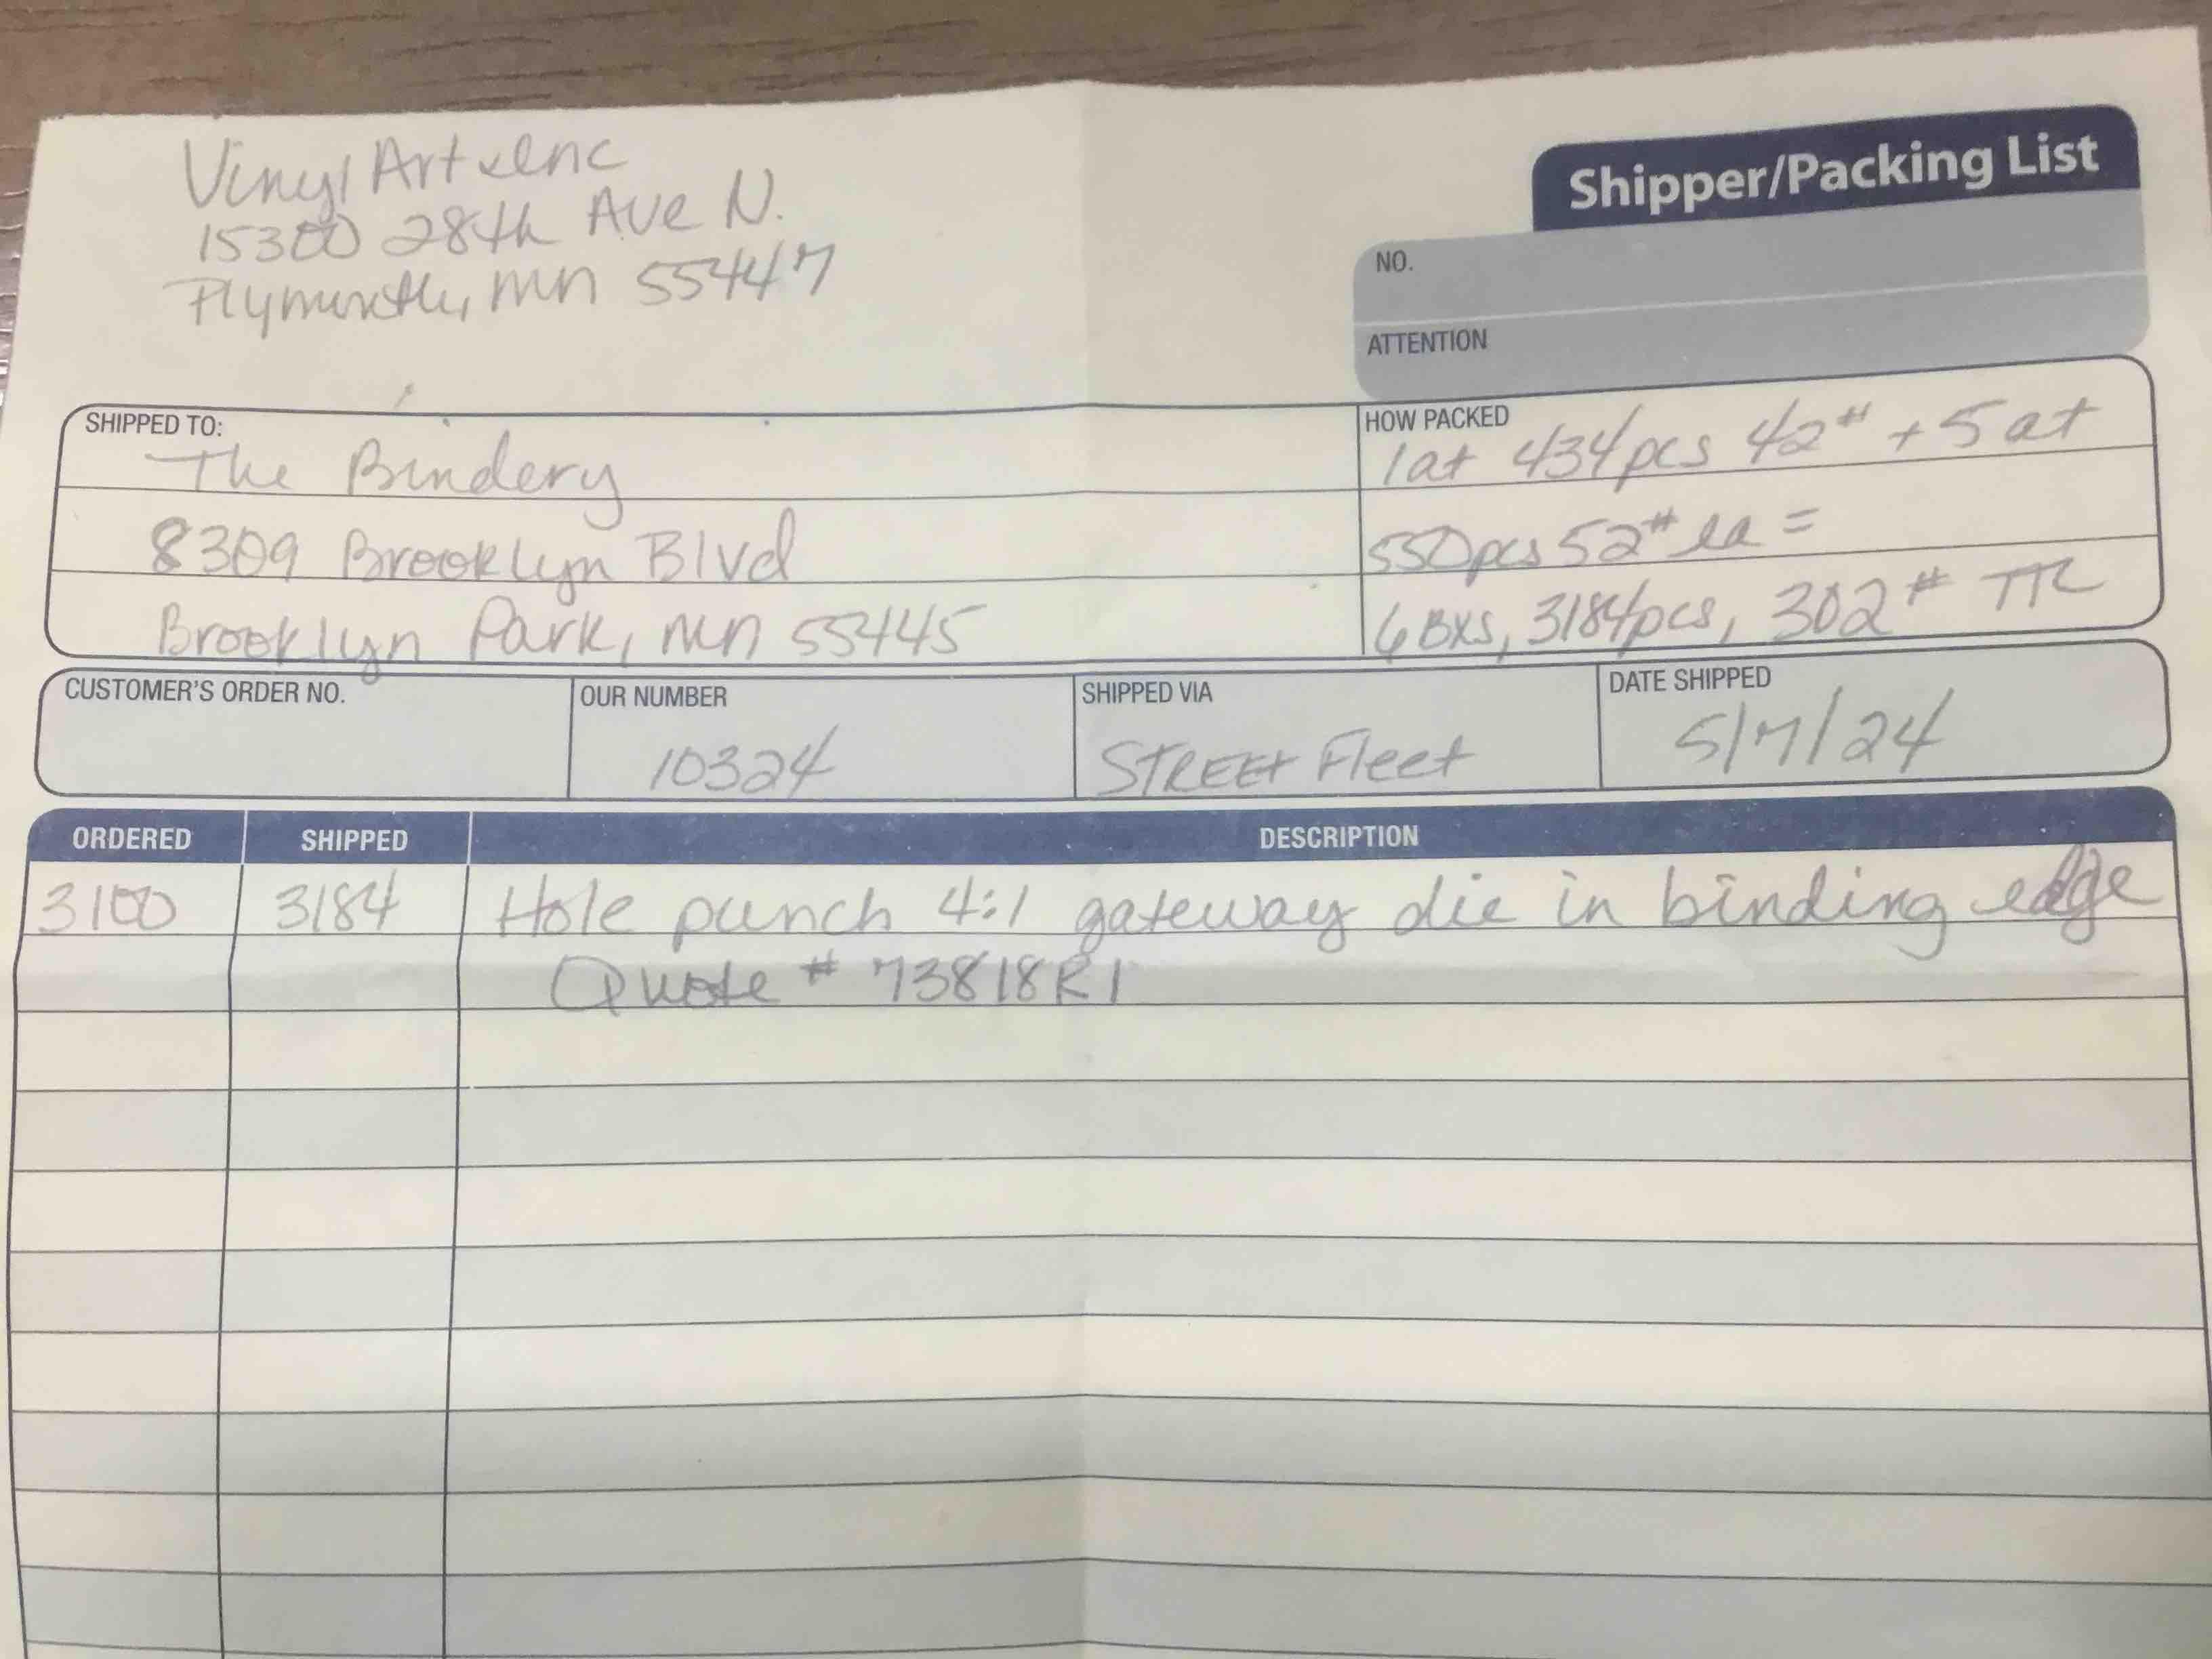 Vinyl Art, Inc
15300 28th Ave N.
Plymouth, MN 55447
Shipper/Packing List
NO.
ATTENTION
SHIPPED TO:
The Bindery
8309 Brooklyn Blvd
Brooklyn Park, MN 55445
HOW PACKED
1 at 434pcs 42# + 5 at
550pcs 52# ea =
6 BXS, 3184pcs, 302# TTL
CUSTOMER'S ORDER NO.
OUR NUMBER
10324
SHIPPED VIA
STREET Fleet
DATE SHIPPED
5/7/24
ORDERED SHIPPED DESCRIPTION
3100 3184 Hole punch 4:1 gateway die in binding edge
Quote # 73818R1